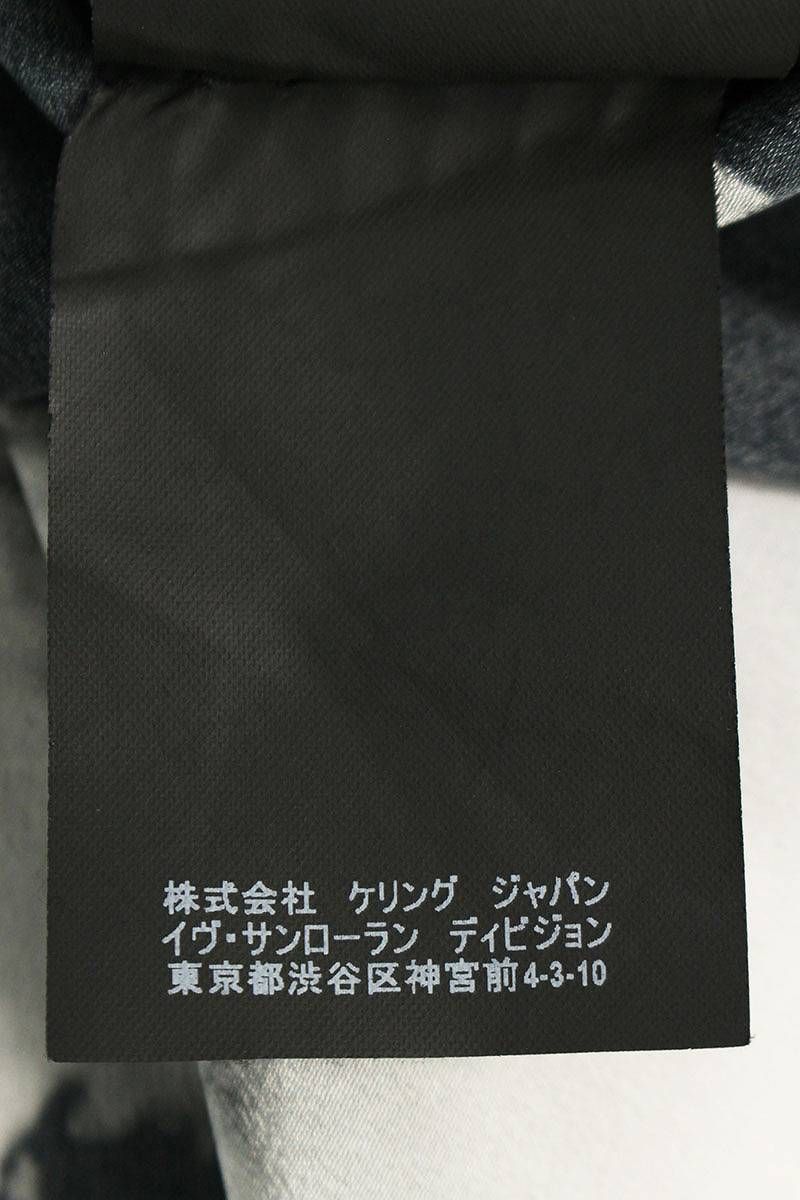 株式会社 ケリング ジャパン
イヴ・サンローラン ディビジョン
東京都渋谷区神宮前4-3-10